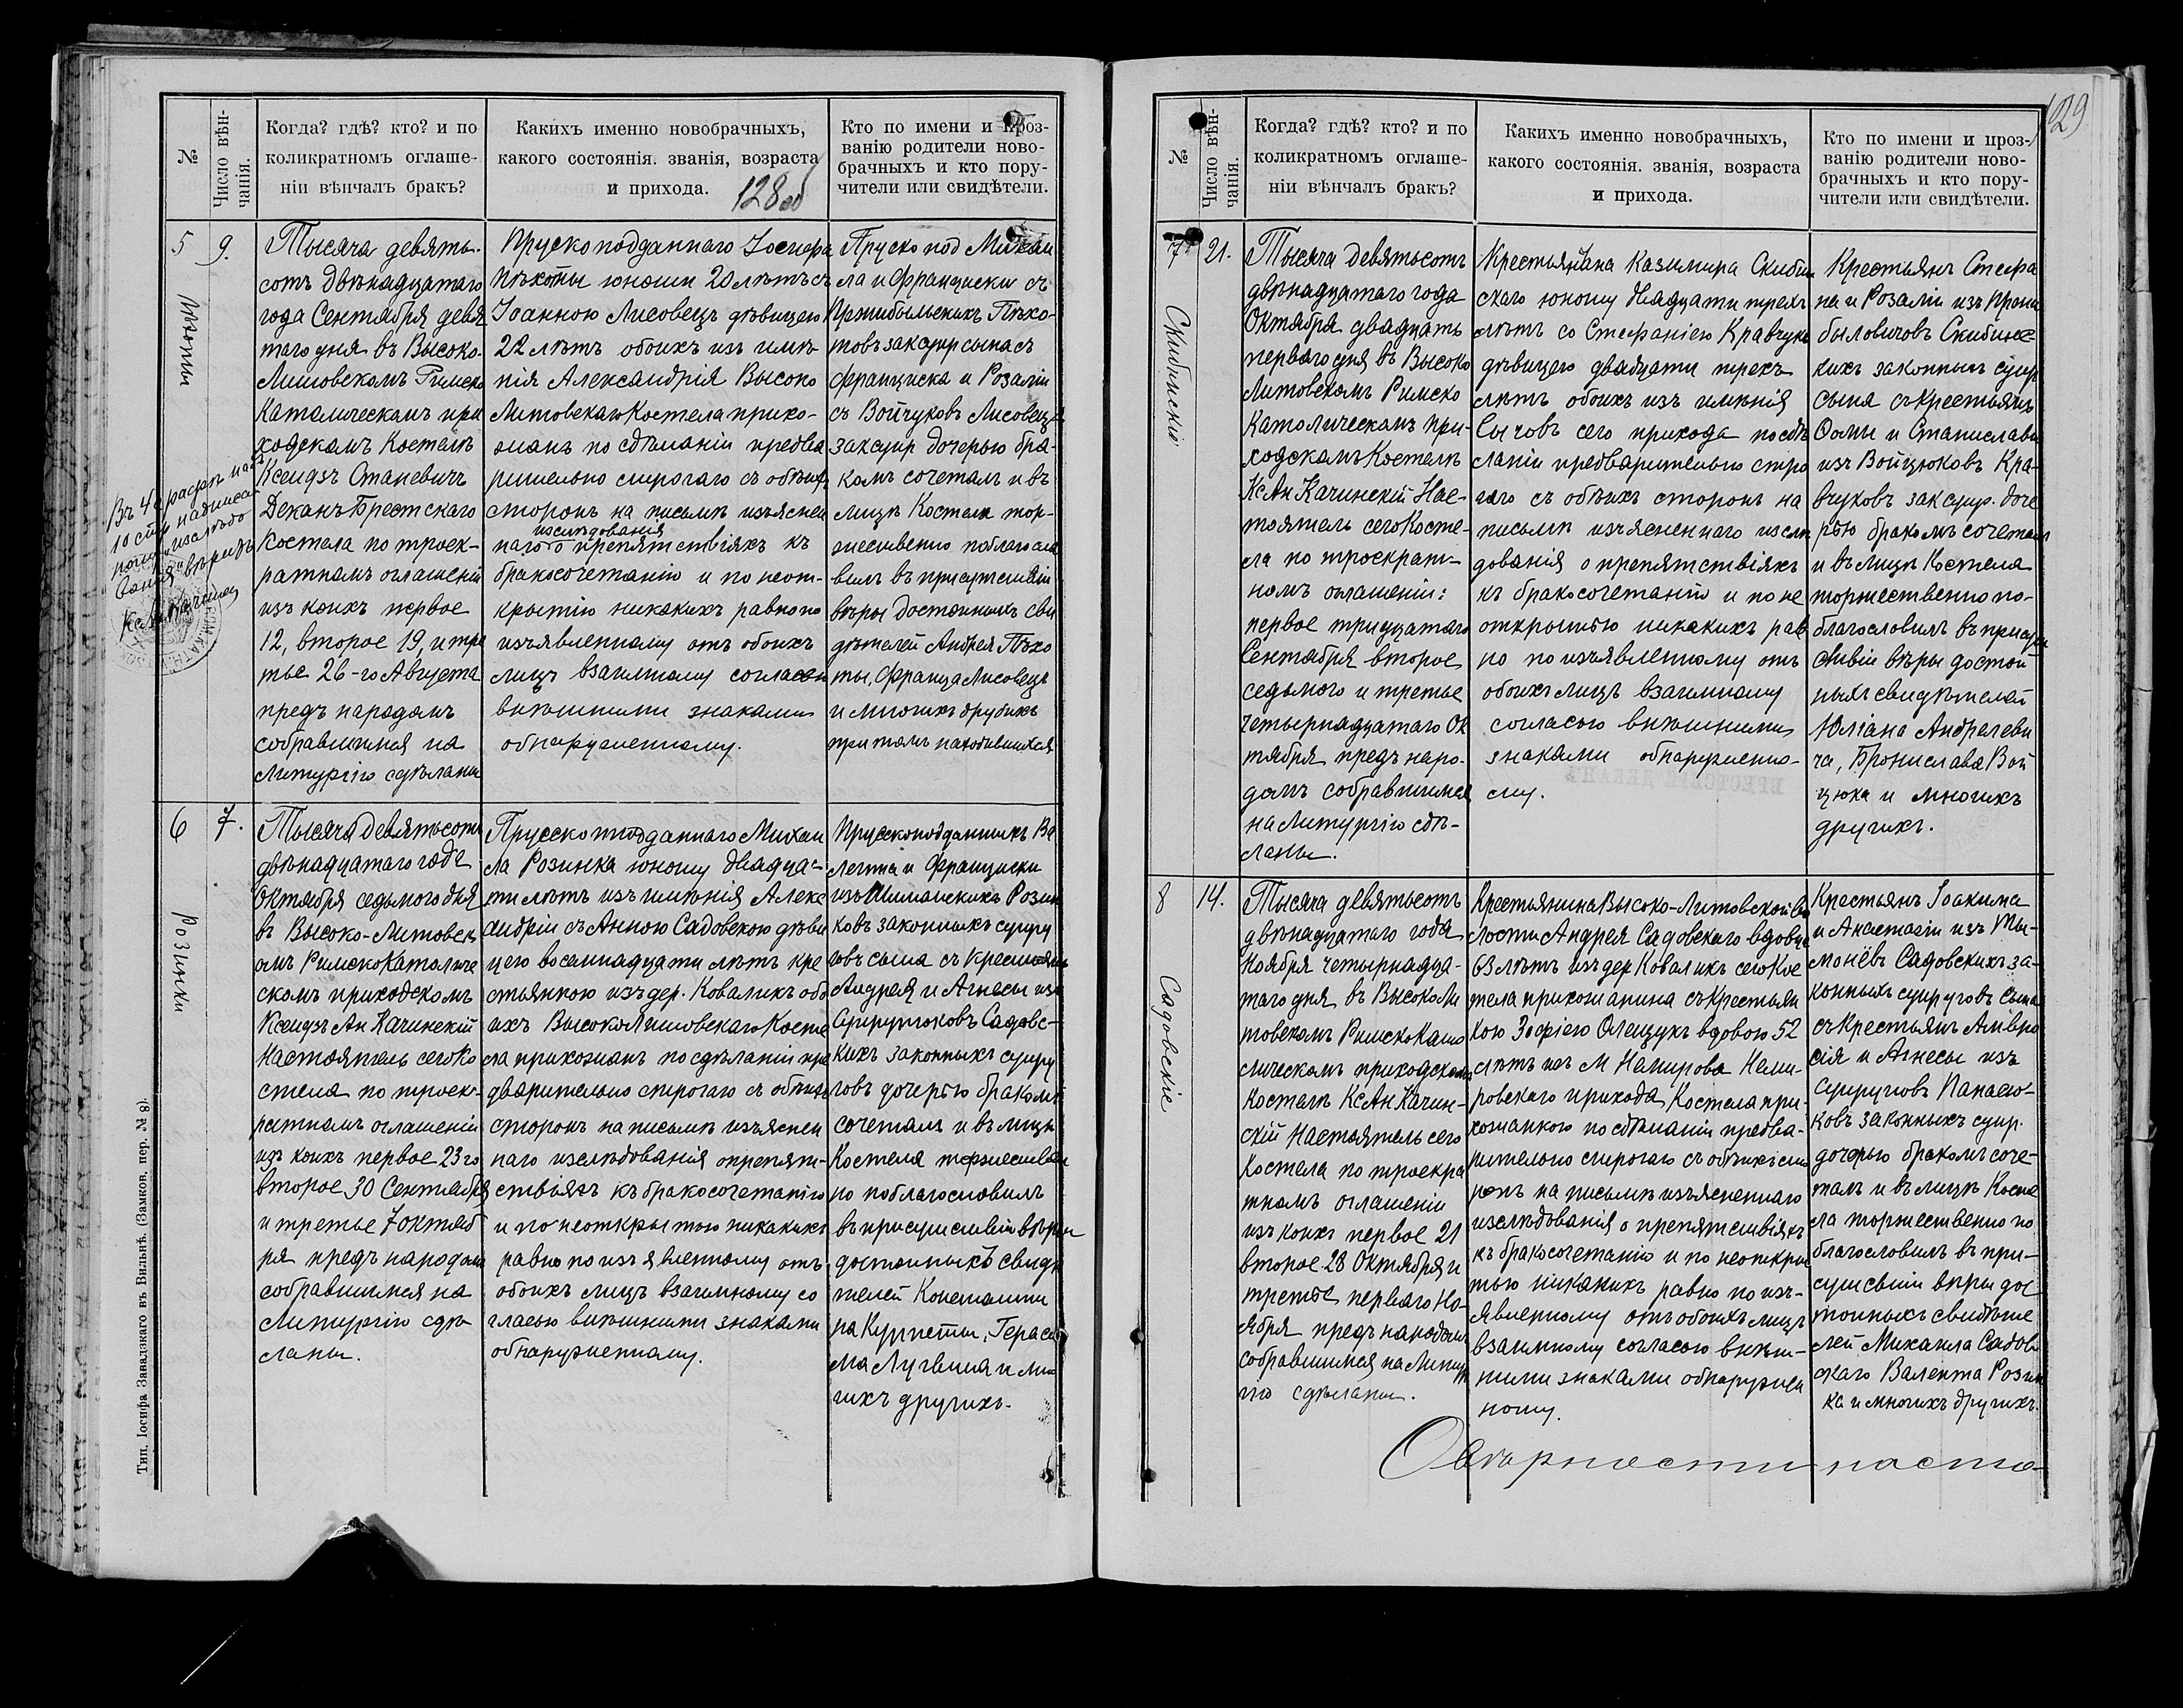 128 об
№
Число вѣн-
чанія.
Когда? гдѣ? кто? и по
коликратномъ оглаше-
ніи вѣнчалъ бракъ?
Какихъ именно новобрачныхъ,
какого состоянія. званія, возраста
и прихода.
Кто по имени и проз-
ванію родители ново-
брачныхъ и кто пору-
чители или свидѣтели.
5
9.
Тысяча девять-
сотъ двѣнадцатаго
года Сентября девя
таго дня въ Высоко-
Литовскомъ Римско
Католическомъ при
ходскомъ Костелѣ
Ксендзъ Станевичъ
Деканъ Брестскаго
Костела по троек-
ратномъ оглашеніи
изъ коихъ первое
12, второе 19, и тре
тье 26-го Августа
предъ народомъ
собравшимся на
Литургію сдѣланы
Пруско подданнаго Іосифа
Пѣхоты юноши 20 лѣтъ съ
Іоанною Лисовецъ дѣвицею
22 лѣтъ обоихъ изъ имѣ-
нія Александрія Высоко
Литовскаго Костела прихо-
жанъ по сдѣланіи предва
рительно строгаго съ обѣихъ
сторонъ на письмѣ изъяснен
изслѣдованія
наго о препятствіяхъ къ
бракосочетанію и по неот-
крытію никакихъ равно по
изъявленному отъ обоихъ
лицъ взаимному согласію
внѣшними знаками
обнаруженному.
Пруско под Михаи
ла и Франциски съ
Пржибыльскихъ Пѣхо-
товъ зак супр сына съ
Франциска и Розаліи
съ Войчуковъ Лисовецъ
зак супр дочерью бра-
комъ сочеталъ и въ
лицѣ Костела тор-
жественно поблагосло
вилъ въ присутствіи
вѣры достойныхъ сви
дѣтелей Андрея Пѣхо
ты, Франца Лисовецъ
и многихъ другихъ
притомъ находившихся
6
7.
Розинки
Тысяча девятьсотъ
двѣнадцатаго года
Октября седьмого дня
въ Высоко-Литовск
омъ Римско Католиче
скомъ приходскомъ
Ксендзъ Ан Качинскій
Настоятель сего Ко
стела по троек-
ратномъ оглашеніи
изъ коихъ первое 23 го
второе 30 Сентября
и третье 7 октяб
ря предъ народомъ
собравшимся на
Литургію сдѣ
ланы.
Прусско подданнаго Михаи
ла Розинка юношу двадца-
ти лѣтъ изъ имѣнія Алекс
андріи съ Анною Садовскою дѣви
цею восемнадцати лѣтъ кре
стьянкою изъ дер. Коваликъ обо
ихъ Высоко Литовскаго Косте
ла прихожанъ по сдѣланіи пре
дварительно строгаго съ обѣихъ
сторонъ на письмѣ изъяснен
наго изслѣдованія о препят-
ствіяхъ къ бракосочетанію
и по неоткрытію никакихъ
равно по изъявленному отъ
обоихъ лицъ взаимному со
гласію внѣшними знаками
обнаруженному.
Прусскоподданныхъ Ва
лента и Франциски
изъ Шиманскихъ Розин
ковъ законныхъ супру
говъ сына съ крестьянъ
Андрея и Агнесы изъ
Супрунюковъ Садовс-
кихъ законныхъ супру
говъ дочерью бракомъ
сочеталъ и въ лицѣ
Костела торжествен
но поблагословилъ
въ присутствіи вѣры
достойныхъ свидѣ
телей Константи
на Курпеты, Гераси
ма Лугвина и мно
гихъ другихъ.
Тип. Іосифа Завадзкаго въ Вильнѣ. (Занков. пер. № 8).
129
№
Число вѣн-
чанія.
Когда? гдѣ? кто? и по
коликратномъ оглаше-
ніи вѣнчалъ бракъ?
Какихъ именно новобрачныхъ,
какого состоянія. званія, возраста
и прихода.
Кто по имени и проз-
ванію родители ново-
брачныхъ и кто пору-
чители или свидѣтели.
7
21.
Скибинскіе
Тысяча девятьсотъ
двѣнадцатаго года
Октября двадцать
перваго дня въ Высоко
Литовскомъ Римско
Католическомъ при-
ходскомъ Костелѣ
Кс Ан Качинскій Нас-
тоятель сего Косте-
ла по троекрат-
номъ оглашеніи:
первое тридцатаго
Сентября второе
седьмого и третье
четырнадцатаго Ок
тября предъ наро-
домъ собравшимся
на Литургію сдѣ-
ланы.
Крестьянина Казимира Скибин
скаго юношу двадцати трехъ
лѣтъ со Стефаніею Кравчукъ
дѣвицею двадцати трехъ
лѣтъ обоихъ изъ имѣнія
Сычовъ сего прихода по сдѣ
ланіи предварительно стро
гаго съ обѣихъ сторонъ на
письмѣ изъясненнаго изслѣ
дованія о препятствіяхъ
къ бракосочетанію и по не
открытію никакихъ рав
но по изъявленному отъ
обоихъ лицъ взаимному
согласію внѣшними
знаками обнаруженно-
му.
Крестьянъ Стефа
на и Розаліи изъ Прони
быловичовъ Скибинс-
кихъ законныхъ супр
сына съ крестьянъ
Фомы и Станиславы
изъ Войцюковъ Кра-
вчуковъ зак супр. доче
рью бракомъ сочеталъ
и въ лицѣ Костела
торжественно по-
благословилъ въ присут
ствіи вѣры достой
ныхъ свидѣтелей
Юліана Андрееви
ча, Бронислава Вой
цюка и многихъ
другихъ.
8
14.
Садовскіе
Тысяча девятьсотъ
двѣнадцатаго года
Ноября четырнадца-
таго дня въ Высоко Ли
товскомъ Римско Като
лическомъ приходскомъ
Костелѣ Кс Ан Качин-
скій Настоятель сего
Костела по троекра
тномъ оглашеніи
изъ коихъ первое 21
второе 28 Октября и
третье перваго Но-
ября предъ народомъ
собравшимся на Литур
гію сдѣланы.
Крестьянина Высоко-Литовской во
лости Андрея Садовскаго вдовца
63 лѣтъ изъ дер Коваликъ сего Кос
тела прихожанина съ крестьян
кою Зофіею Олещукъ вдовою 52
лѣтъ изъ М Немирова Неми-
ровскаго прихода Костела при-
хожанкою по сдѣланіи предва-
рительно строгаго съ обѣихъ сто
ронъ на письмѣ изъясненнаго
изслѣдованія о препятствіяхъ
къ бракосочетанію и по неоткры
тію никакихъ равно по изъ-
явленному отъ обоихъ лицъ
взаимному согласію внѣш-
ними знаками обнаружен
ному.
Крестьянъ Іоакима
и Анастасіи изъ Ти-
монёвъ Садовскихъ за-
конныхъ супруговъ сына
съ крестьянъ Амвро
сія и Агнесы изъ
супруговъ Панасю-
ковъ законныхъ супр.
дочерью бракомъ соче-
талъ и въ лицѣ Косте
ла торжественно по
благословилъ въ при-
сутствіи вѣры дос
тойныхъ свидѣте
лей Михаила Садов
скаго Валента Розин
ка и многихъ другихъ.